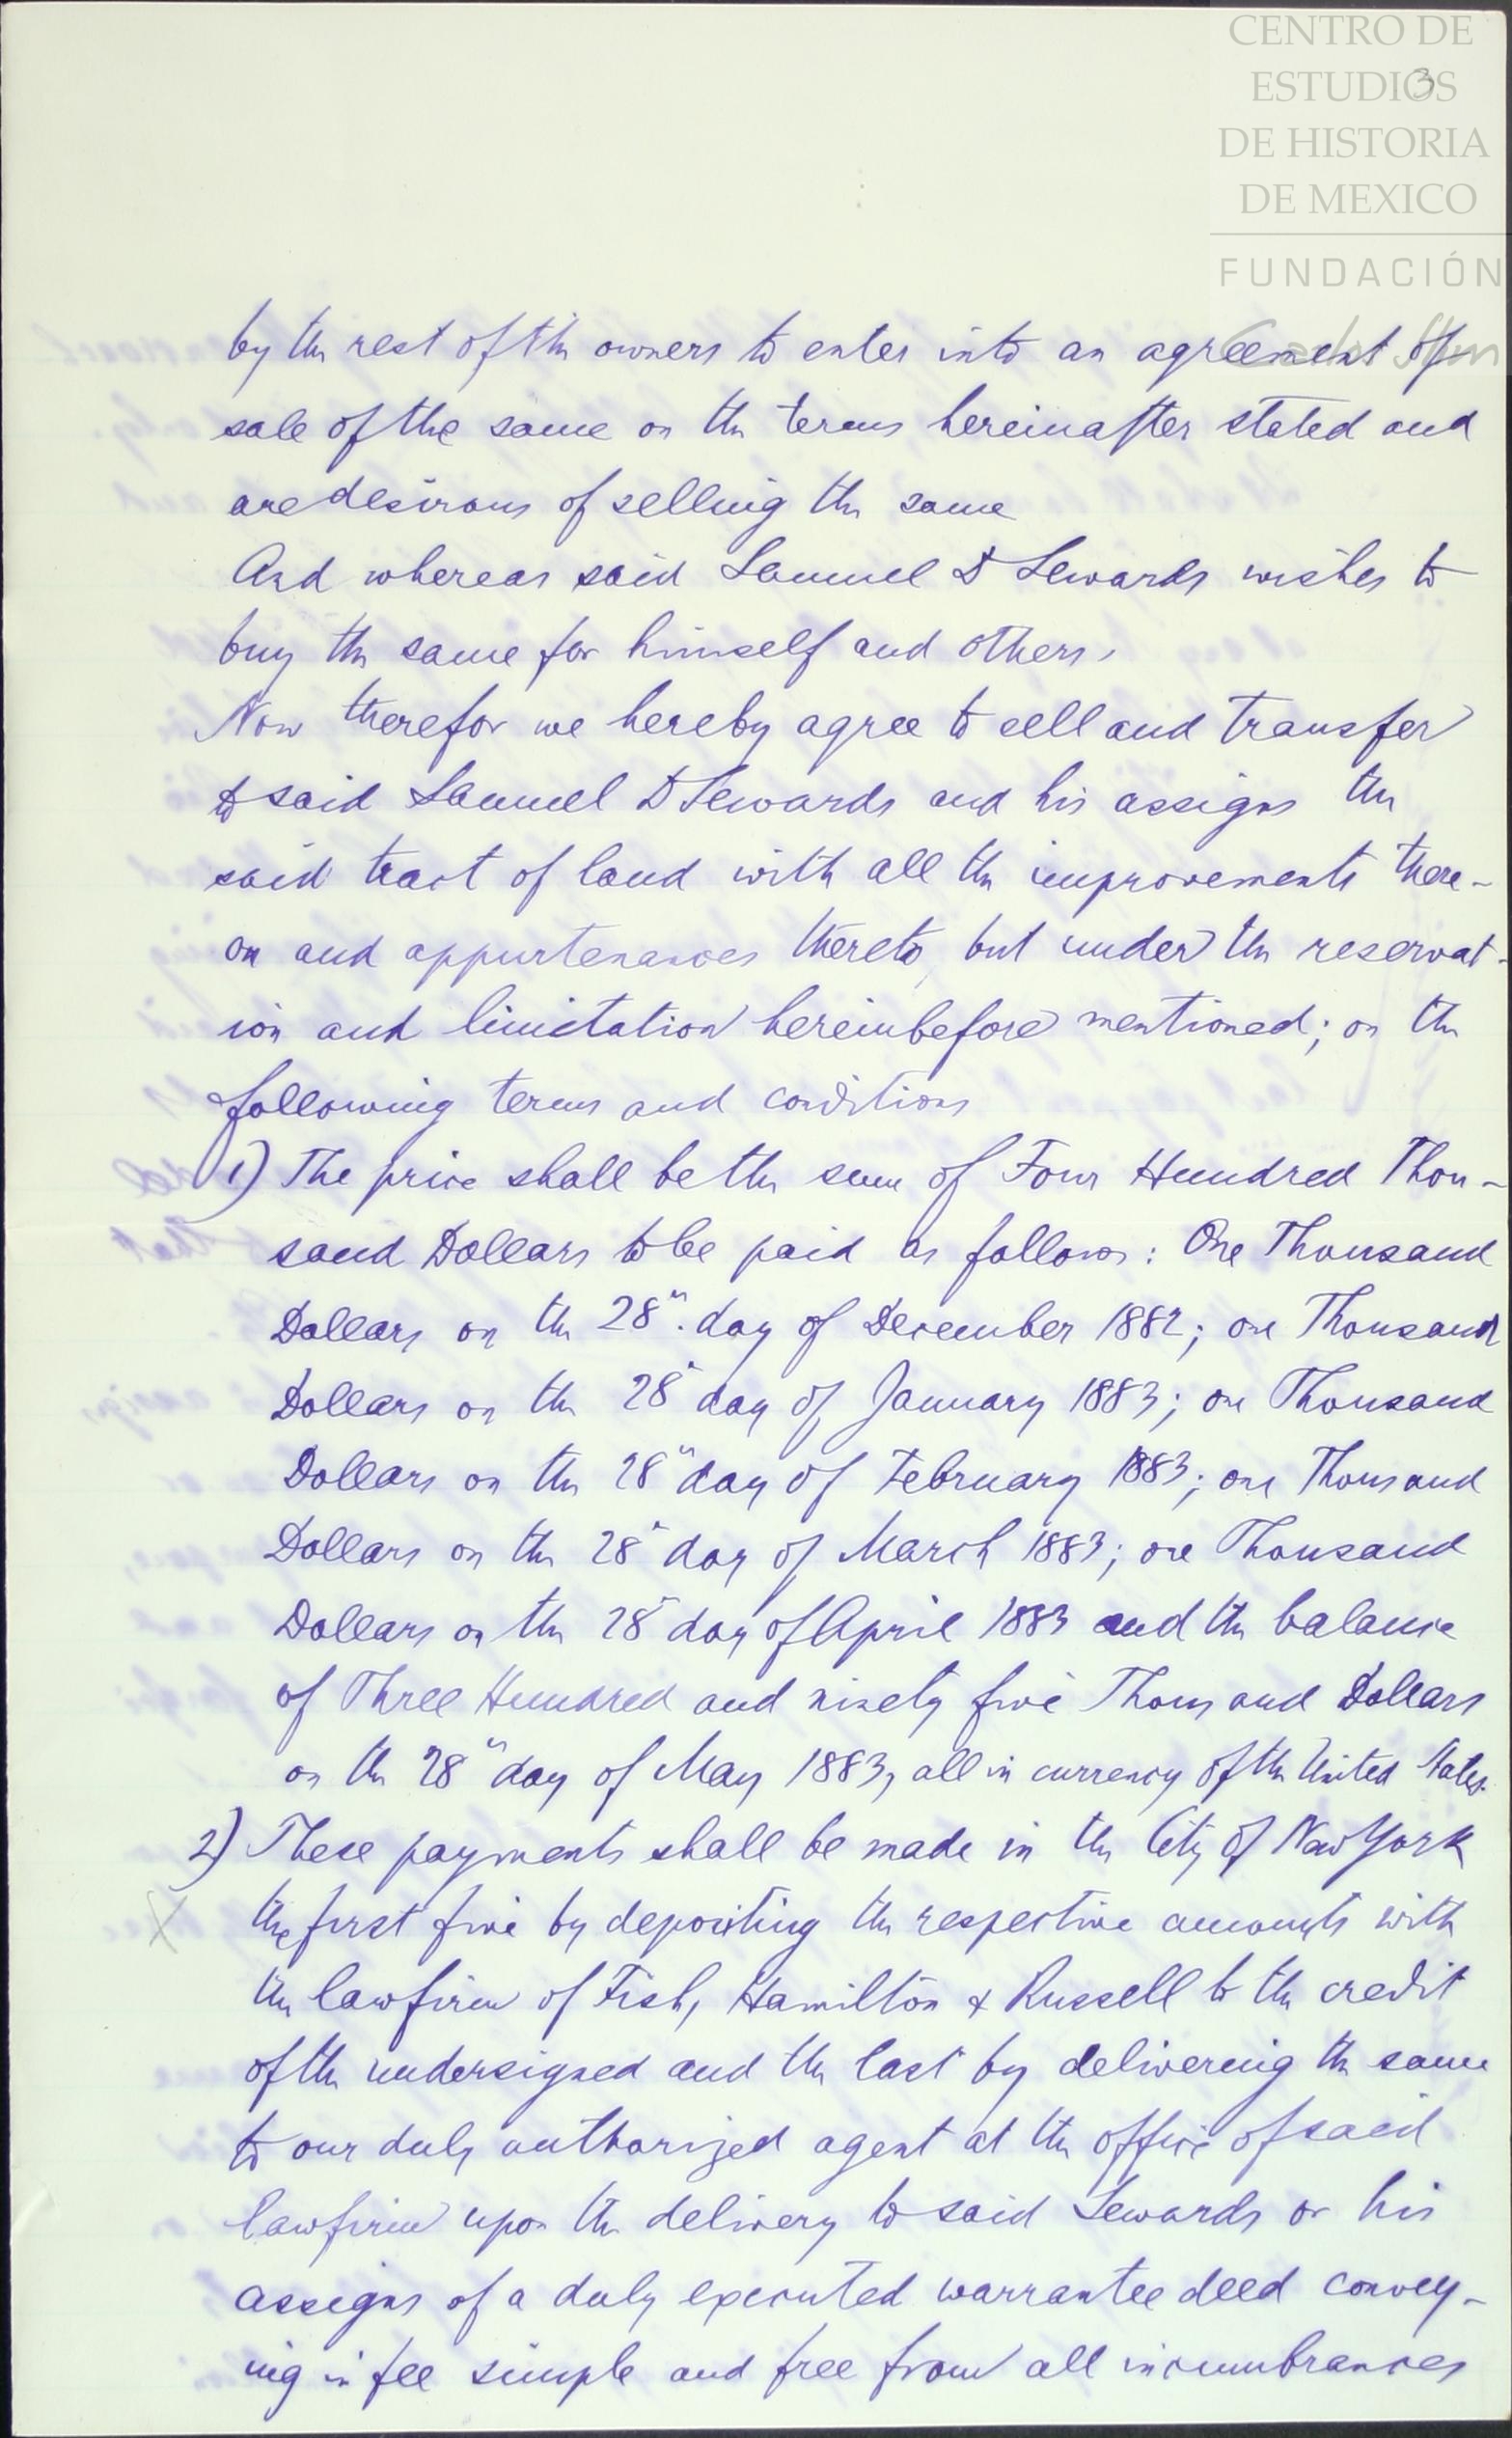 CENTRO DE
ESTUDIOS
3
DE HISTORIA
DE MEXICO
FUNDACIÓN
by the rest of the owners to enter into an agreement of
sale of the same on the terms hereinafter stated and
are desirous of selling the same
And whereas said Samuel D Sewards wishes to
buy the same for himself and others,
Now therefor we hereby agree to sell and transfer
to said Samuel D Sewards and his assigns the
said tract of land with all the improvements there-
on and appurtenances thereto, but under the reservat-
ion and limitation hereinbefore mentioned; on the
following terms and conditions
1) The price shall be the sum of Four Hundred Thou-
sand Dollars to be paid as follows: One Thousand
Dollars on the 28" day of December 1882; one Thousand
Dollars on the 28" day of January 1883; one Thousand
Dollars on the 28" day of February 1883; one Thousand
Dollars on the 28" day of March 1883; one Thousand
Dollars on the 28" day of April 1883 and the balance
of Three Hundred and ninety five Thousand Dollars
on the 28" day of May 1883, all in currency of the United States.
2) These payments shall be made in the City of New York
the first five by depositing the respective amounts with
the lawfirm of Fish, Hamilton & Russell to the credit
of the undersigned and the last by delivering the same
to our duly authorized agent at the office of said
lawfirm upon the delivery to said Sewards or his
assigns of a duly executed warrantee deed convey-
ing in fee simple and free from all incumbrances